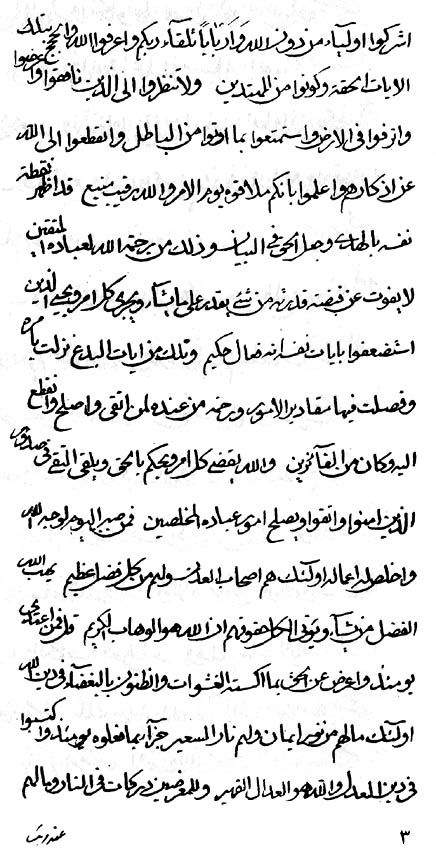 اشركوا اولياء من دون الله وَاَرْبَاباً تلقاء ربكم واعرفوا الله
الايات المحقة وكونوا من المهتدين ولا تنظروا الى الذين نافقوا
واترفوا فى الارض واستمتعوا بما اوتوا من الباطل وانقطعوا الى الله
عن اذكارهم واعلموا بانكم ملاقوه يوم الامر والله رقيب منيع قد اظهر نقطة
نفسه بالهدى وجعل الحق فى البيان وذلك من رحمة الله لعباده المتقين
لا يفوت عن قبضته قدرته من شئ يقدر على ما يشاء ويجرى كل امر ويحيى الذين
استضعفوا بايات نفسه انه فعال حكيم وتلك من ايات البدع نزلت بامره
وفصلت فيها مقادير الامور ورحمة من عنده لمن اتقى واصلح وانقطع
اليه وكان من الفآئزين والله يقضى كل امر ويحكم بالحق ويلقى التقى فى صدور
الذين امنوا واتقوا ويصلح امور عباده المخلصين فمن صبر اليوم لوجه الله
واخلص له اعماله اولئك هم اصحاب العدل ولهم من كل فضل عظيم يهب الله
الفضل من يشآء ويؤتى الكل حقوقهم ان الله هو الوهاب الكريم قل فمن اعتدى
يومئذ واعرض عن الحق بما اكتسبه الشهوات والظنون بالبغضآء فى دين الله
اولئك مالهم من نور ايمان ولهم نار السعير جزآء بما فعلوه يومئذ واكتسبوا
فى دين العدل والله هو العدال القهير وللمعرضين دركات فى النار ومالهم
٣